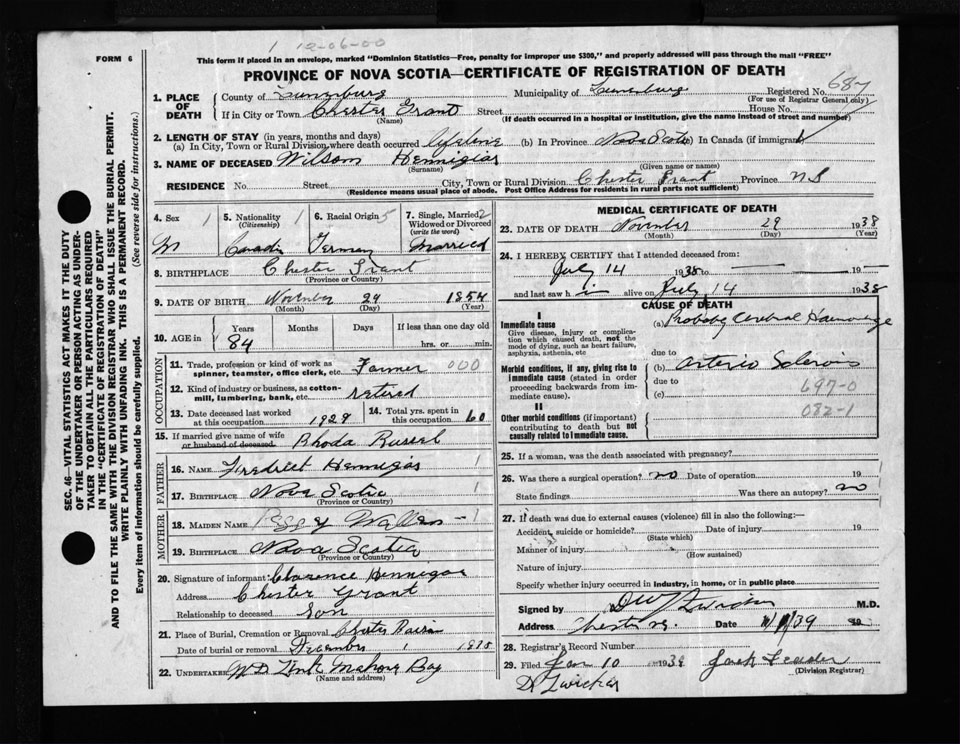 1 12-06-00
FORM 6
This form if placed in an envelope, marked "Dominion Statistics—Free, penalty for improper use $300," and properly addressed will pass through the mail "FREE"
PROVINCE OF NOVA SCOTIA—CERTIFICATE OF REGISTRATION OF DEATH
687
1. PLACE OF DEATH
County of Lunenburg Municipality of Lunenburg Registered No.
(For use of Registrar General only)
If in City or Town Chester Grant Street House No.
(Name) (If death occurred in a hospital or institution, give the name instead of street and number)
2. LENGTH OF STAY (in years, months and days)
(a) In City, Town or Rural Division, where death occurred lifetime (b) In Province Nova Scotia (c) In Canada (if immigrant)
3. NAME OF DECEASED Wilson Hennigar
(Surname) (Given name or names)
RESIDENCE No. Street City, Town or Rural Division Chester Grant Province N S
(Residence means usual place of abode. Post Office Address for residents in rural parts not sufficient)
4. Sex 1
M
5. Nationality 1
(Citizenship)
Canada
6. Racial Origin 5
German
7. Single, Married 2
Widowed or Divorced
(write the word)
Married
8. BIRTHPLACE Chester Grant
(Province or Country)
9. DATE OF BIRTH November 29 1854
(Month) (Day) (Year)
10. AGE in
Years Months Days If less than one day old
84 hrs. or min.
OCCUPATION
11. Trade, profession or kind of work as Farmer 000
spinner, teamster, office clerk, etc.
12. Kind of industry or business, as cotton-
mill, lumbering, bank, etc. retired
13. Date deceased last worked
at this occupation 1929
14. Total yrs. spent in
this occupation 60
15. If married give name of wife
or husband of deceased Rhoda Russel
FATHER
16. NAME Fredrick Hennigar 1
17. BIRTHPLACE Nova Scotia 1
(Province or Country)
MOTHER
18. MAIDEN NAME 1
19. BIRTHPLACE Nova Scotia
(Province or Country)
20. Signature of informant Clarence Hennegar
Address Chester Grant
Relationship to deceased Son
21. Place of Burial, Cremation or Removal Chester
Date of burial or removal December 1 1938
22. UNDERTAKER W D Mahone Bay
(Name and address)
MEDICAL CERTIFICATE OF DEATH
23. DATE OF DEATH November 29 1938
(Month) (Day) (Year)
24. I HEREBY CERTIFY that I attended deceased from:
July 14 1938 to — 19 —
and last saw h i alive on July 14 1938
CAUSE OF DEATH
I
Immediate cause
Give disease, injury or complication which caused death, not the
mode of dying, such as heart failure,
asphyxia, asthenia, etc
(a) Probably Cerebral Haemorrage
due to
Morbid conditions, if any, giving rise to
immediate cause (stated in order
proceeding backwards from immediate cause).
(b) Arterio Sclerosis
due to
697-0
(c)
082-1
II
Other morbid conditions (if important)
contributing to death but not
causally related to immediate cause.
25. If a woman, was the death associated with pregnancy?
26. Was there a surgical operation? no Date of operation 19
State findings Was there an autopsy? no
27. If death was due to external causes (violence) fill in also the following:—
Accident, suicide or homicide? Date of injury 19
(State which)
Manner of injury
(How sustained)
Nature of injury
Specify whether injury occurred in industry, in home, or in public place
Signed by M.D.
Address Chester N.S. Date
28. Registrar's Record Number
29. Filed Jan 10 1939
(Division Registrar)
D Zwicker
SEC. 46—VITAL STATISTICS ACT MAKES IT THE DUTY
OF THE UNDERTAKER OR PERSON ACTING AS UNDERTAKER
TO OBTAIN ALL THE PARTICULARS REQUIRED
IN THE "CERTIFICATE OF REGISTRATION OF DEATH"
AND TO FILE THE SAME WITH THE DIVISION REGISTRAR WHO SHALL ISSUE THE BURIAL PERMIT.
WRITE PLAINLY WITH UNFADING INK. THIS IS A PERMANENT RECORD.
Every item of information should be carefully supplied. (See reverse side for instructions.)